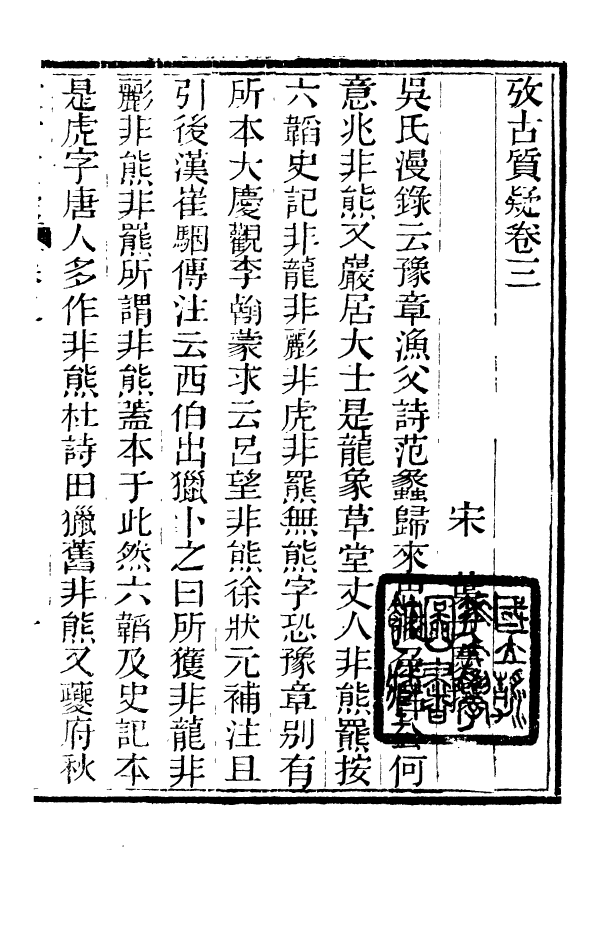 攷古質疑卷三
宋
吳氏漫錄云豫章漁父詩范蠡歸來何
意兆非熊又巖居大士是龍象草堂丈人非熊羆按
六韜史記非龍非彨非虎非羆無熊字恐豫章别有
所本大慶觀李翰蒙求云呂望非熊徐狀元補注且
引後漢崔駰傳注云西伯出獵卜之曰所獲非龍非
彨非熊非羆所謂非熊蓋本于此然六韜及史記本
是虎字唐人多作非熊杜詩田獵舊非熊又夔府秋